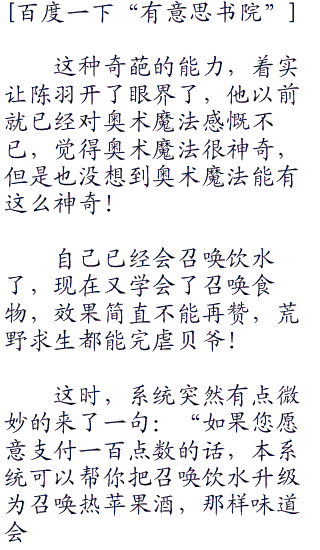 [百度一下“有意思书院”]
这种奇葩的能力，着实
让陈羽开了眼界了，他以前
就已经对奥术魔法感慨不
已，觉得奥术魔法很神奇，
但是也没想到奥术魔法能有
这么神奇！
自己已经会召唤饮水
了，现在又学会了召唤食
物，效果简直不能再赞，荒
野求生都能完虐贝爷！
这时，系统突然有点微
妙的来了一句：“如果您愿
意支付一百点数的话，本系
统可以帮你把召唤饮水升级
为召唤热苹果酒，那样味道
会